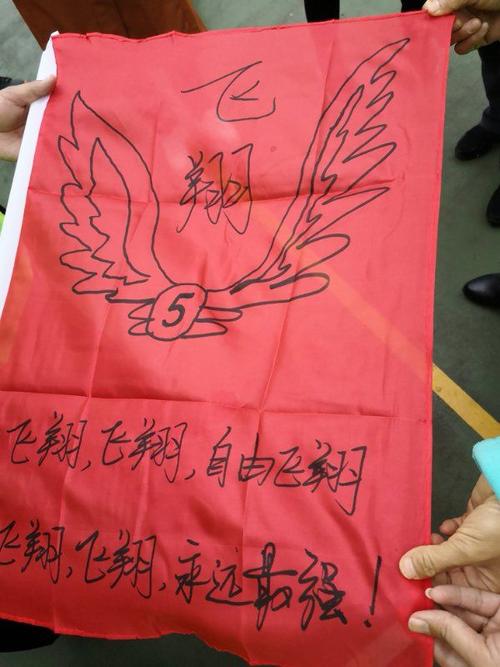 飞
翔
5
飞翔，飞翔，自由飞翔
飞翔，飞翔，永远最强！